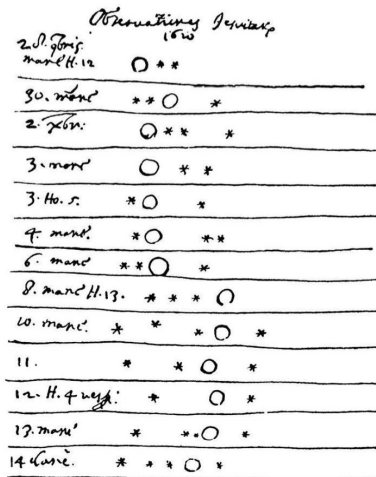 Observationes Jesuitarum
1610
2. S. 9bris
mane H. 12
30. mane
2. Xbr:
3. mane
3. Ho. 5.
4. mane.
6. mane
8. mane H. 13.
10. mane.
11.
12. H. 4 vesp:
13. mane
14 Casc.